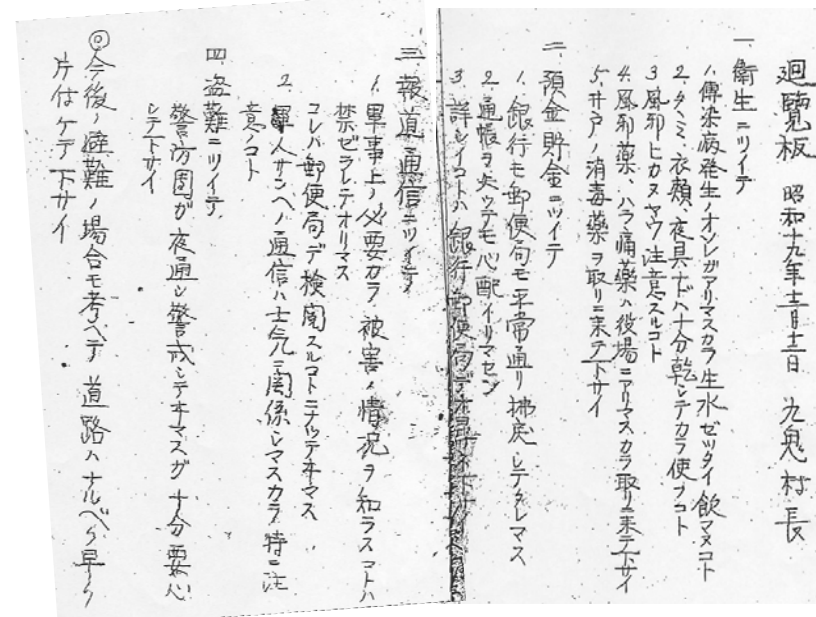 廻覧板 昭和十九年十二月十二日 九鬼村長
一、衛生ニツイテ
1. 傳染病発生ノオソレガアリマスカラ生水ゼッタイ飲マヌコト
2. タヽミ、衣類、夜具ナドハ十分乾シテカラ使フコト
3 風邪ヒカヌヤウ注意スルコト
4. 風邪薬、ハラ痛薬ハ役場ニアリマスカラ取リニ来テ下サイ
5. 井戸ノ消毒薬ヲ取リニ来テ下サイ
二、預金貯金ニツイテ
1. 銀行モ郵便局モ平常通リ拂戻シテクレマス
2. 通帳ヲ失ッテモ心配イリマセン
3 詳シイコトハ銀行郵便局デ
三、報道通信ニツイテ
1. 軍事上ノ必要カラ被害ノ情況ヲ知ラスコトハ
禁ゼラレテオリマス
コレバ郵便局デ検閲スルコトニナッテヰマス
2. 軍人サンヘノ通信ハ士気ニ関係シマスカラ特ニ注
意ノコト
四、盗難ニツイテ
警防團ガ夜通シ警戒シテヰマスガ十分要心
シテ下サイ
◎今後ノ避難ノ場合モ考ヘテ道路ハナルベク早ク
片付ケテ下サイ